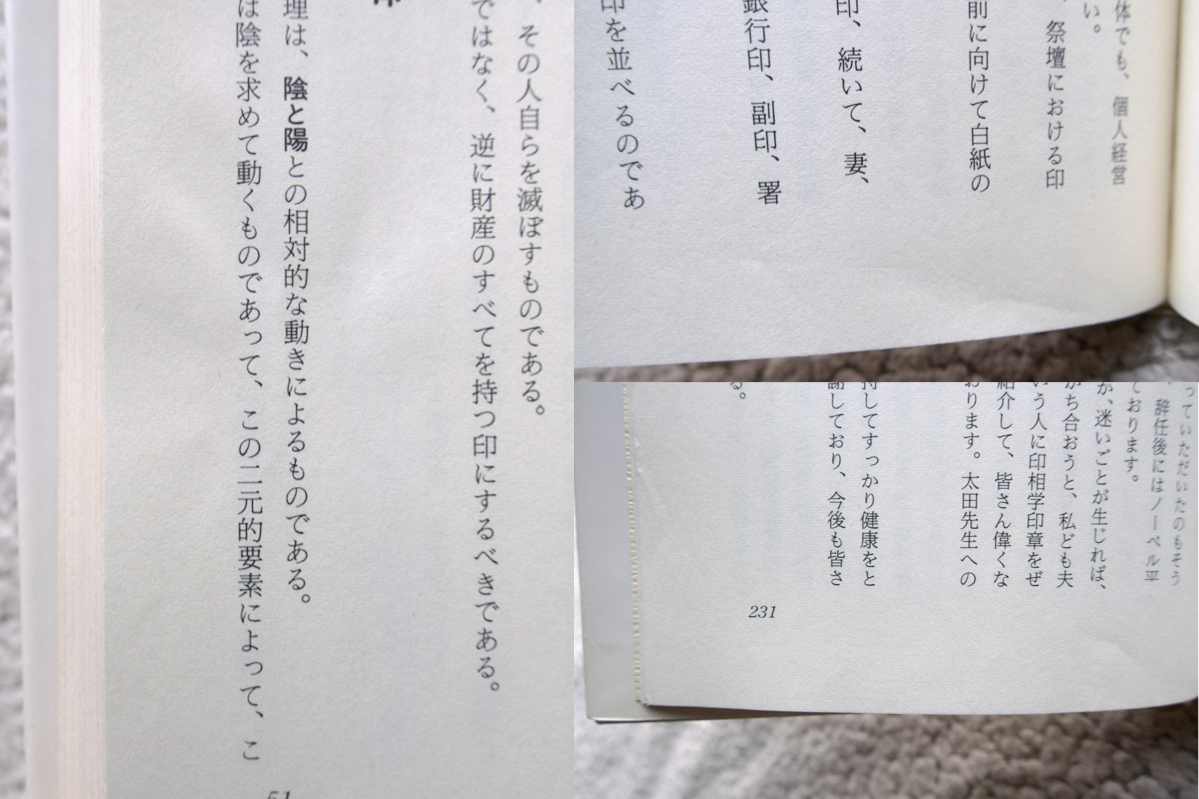 、その人自らを滅ぼすものである。
ではなく、逆に財産のすべてを持つ印にするべきである。
理は、陰と陽との相対的な動きによるものである。
は陰を求めて動くものであって、この二元的要素によって、こ
51
体でも、個人経営
い。
、祭壇における印
前に向けて白紙の
印、続いて、妻、
銀行印、副印、署
印を並べるのであ
っていただいたのもそう
辞任後にはノーベル平
ております。
か、迷いごとが生じれば、
がち合おうと、私ども夫
いう人に印相学印章をぜ
紹介して、皆さん偉くな
おります。太田先生への
持してすっかり健康をと
謝しており、今後も皆さ
る。
231